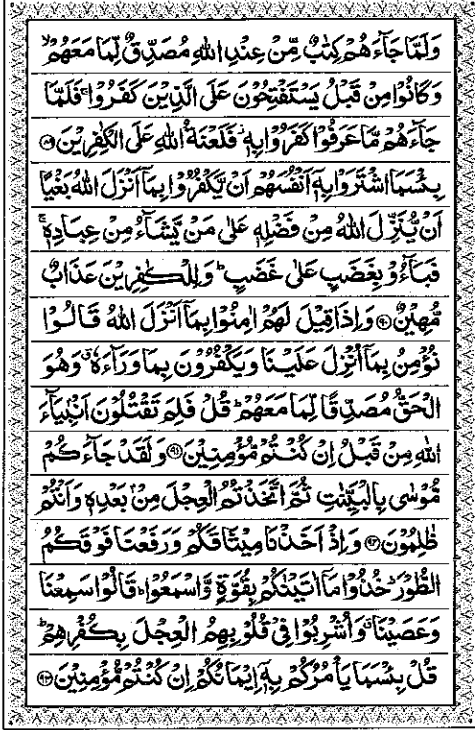 وَلَمَّا جَآءَهُمْ كِتٰبٌ مِّنْ عِنْدِ اللّٰهِ مُصَدِّقٌ لِّمَا مَعَهُمْ ۙ
وَكَانُوْا مِنْ قَبْلُ يَسْتَفْتِحُوْنَ عَلَى الَّذِيْنَ كَفَرُوْا ۚ فَلَمَّا
جَآءَهُمْ مَّا عَرَفُوْا كَفَرُوْا بِهٖ ۫ فَلَعْنَةُ اللّٰهِ عَلَى الْكٰفِرِيْنَ ﴿۸۹﴾
بِئْسَمَا اشْتَرَوْا بِهٖۤ اَنْفُسَهُمْ اَنْ يَّكْفُرُوْا بِمَاۤ اَنْزَلَ اللّٰهُ بَغْيًا
اَنْ يُّنَزِّلَ اللّٰهُ مِنْ فَضْلِهٖ عَلٰى مَنْ يَّشَآءُ مِنْ عِبَادِهٖ ۚ
فَبَآءُوْ بِغَضَبٍ عَلٰى غَضَبٍ ؕ وَلِلْكٰفِرِيْنَ عَذَابٌ
مُّهِيْنٌ ﴿۹۰﴾ وَاِذَا قِيْلَ لَهُمْ اٰمِنُوْا بِمَاۤ اَنْزَلَ اللّٰهُ قَالُوْا
نُؤْمِنُ بِمَاۤ اُنْزِلَ عَلَيْنَا وَيَكْفُرُوْنَ بِمَا وَرَآءَهٗ ۗ وَهُوَ
الْحَقُّ مُصَدِّقًا لِّمَا مَعَهُمْ ؕ قُلْ فَلِمَ تَقْتُلُوْنَ اَنْۢبِيَآءَ
اللّٰهِ مِنْ قَبْلُ اِنْ كُنْتُمْ مُّؤْمِنِيْنَ ﴿۹۱﴾ وَلَقَدْ جَآءَكُمْ
مُّوْسٰى بِالْبَيِّنٰتِ ثُمَّ اتَّخَذْتُمُ الْعِجْلَ مِنْۢ بَعْدِهٖ وَاَنْتُمْ
ظٰلِمُوْنَ ﴿۹۲﴾ وَاِذْ اَخَذْنَا مِيْثَاقَكُمْ وَرَفَعْنَا فَوْقَكُمُ
الطُّوْرَ ؕ خُذُوْا مَاۤ اٰتَيْنٰكُمْ بِقُوَّةٍ وَّاسْمَعُوْا ؕ قَالُوْا سَمِعْنَا
وَعَصَيْنَا ۗ وَاُشْرِبُوْا فِيْ قُلُوْبِهِمُ الْعِجْلَ بِكُفْرِهِمْ ؕ
قُلْ بِئْسَمَا يَاْمُرُكُمْ بِهٖۤ اِيْمَانُكُمْ اِنْ كُنْتُمْ مُّؤْمِنِيْنَ ﴿۹۳﴾